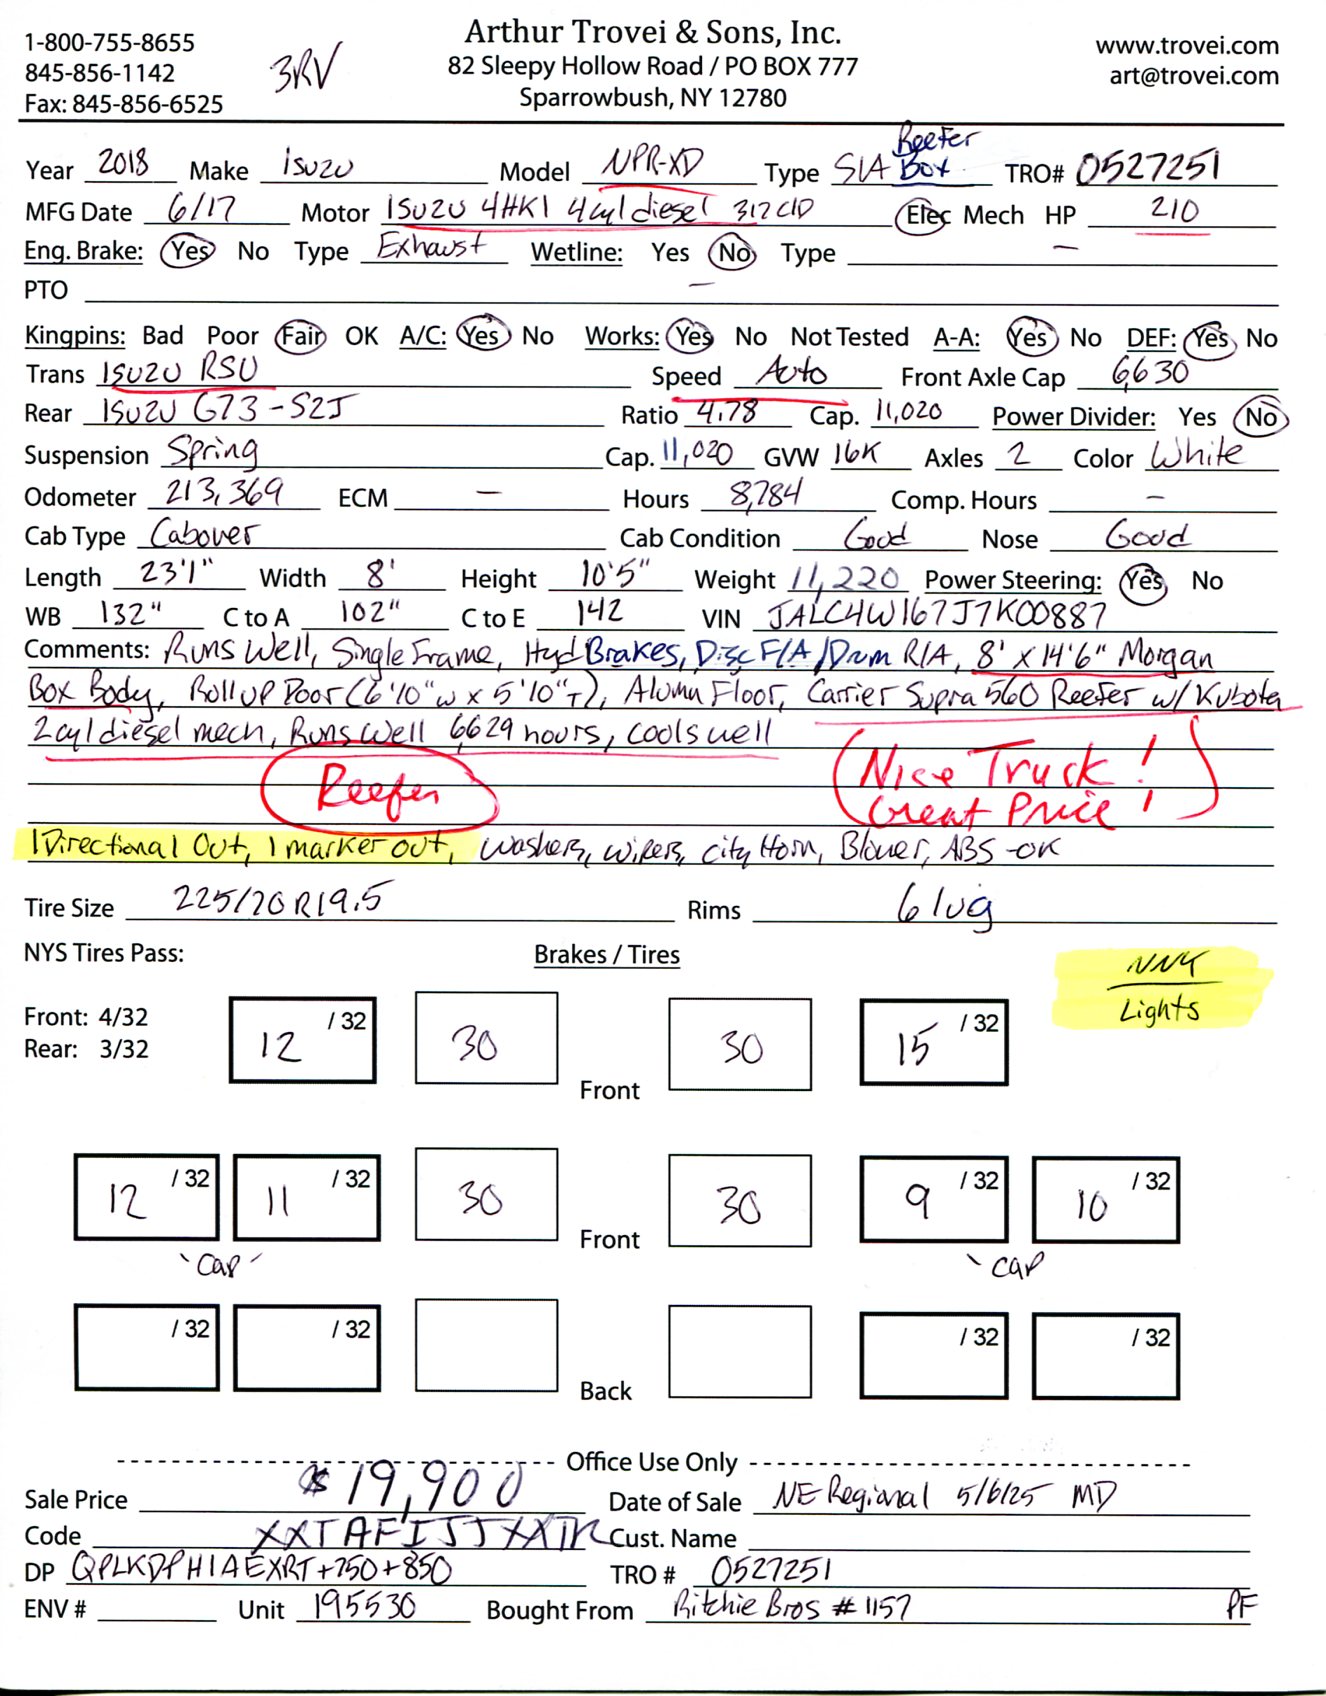 1-800-755-8655
845-856-1142
Fax: 845-856-6525
3RV
Arthur Trovei & Sons, Inc.
82 Sleepy Hollow Road / PO BOX 777
Sparrowbush, NY 12780
www.trovei.com
art@trovei.com
Year 2018 Make ISUZU Model NPR-XD Type S/A Reefer Box TRO# 0527251
MFG Date 6/17 Motor ISUZU 4HK1 4cyl diesel 312 CID Elec Mech HP 210
Eng. Brake: Yes No Type Exhaust Wetline: Yes No Type —
PTO —
Kingpins: Bad Poor Fair OK A/C: Yes No Works: Yes No Not Tested A-A: Yes No DEF: Yes No
Trans ISUZU RSU Speed Auto Front Axle Cap 6,630
Rear ISUZU G73-S2J Ratio 4.78 Cap. 11,020 Power Divider: Yes No
Suspension Spring Cap. 11,020 GVW 16K Axles 2 Color White
Odometer 213,369 ECM — Hours 8,784 Comp. Hours —
Cab Type Cabover Cab Condition Good Nose Good
Length 23'1" Width 8' Height 10'5" Weight 11,220 Power Steering: Yes No
WB 132" C to A 102" C to E 142 VIN JALC4W167J7K00887
Comments: Runs Well, Single Frame, Hyd Brakes, Disc F/A / Drum R/A, 8' x 14'6" Morgan
Box Body, Roll up Door (6'10"w x 5'10"T), Alumn Floor, Carrier Supra 560 Reefer w/ Kubota
2cyl diesel mech, Runs well 6,629 hours, cools well
Reefer
Nice Truck!
Great Price!
1 Directional Out, 1 marker out, washers, wipers, city Horn, Blower, ABS -OK
Tire Size 225/70R19.5 Rims 6 lug
NYS Tires Pass:
Brakes / Tires
NNY
Lights
Front: 4/32
Rear: 3/32
12 /32 30 Front 30 15 /32
12 /32 11 /32 30 Front 30 9 /32 10 /32
"CAP" "CAP
/32 /32 Back /32 /32
Office Use Only
Sale Price $19,900 Date of Sale NE Regional 5/6/25 MD
Code Cust. Name
DP QPLKDPHIAEXRT+750+850 TRO # 0527251
ENV # Unit 195530 Bought From Ritchie Bros #1157 PF